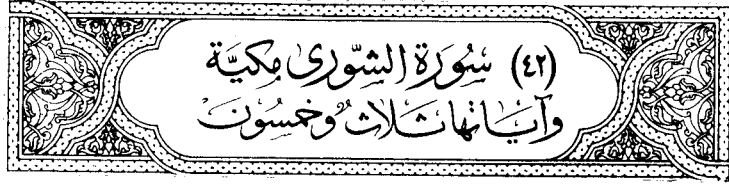 (٤٢) سُورَة الشّورى مكيَّة
وآيَاتها ثَلاثٌ وَخمسُون